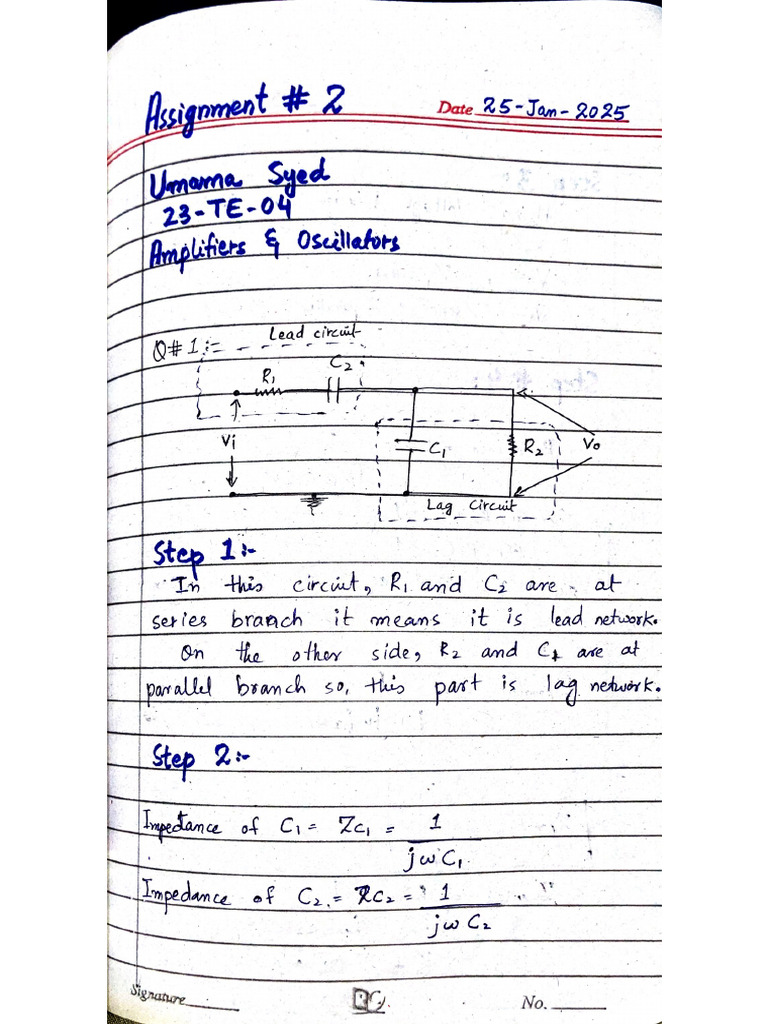 Assignment # 2
Date 25-Jan-2025
Umama Syed
23-TE-04
Amplifiers & Oscillators
Q# 1:-
Lead circuit
R1
C2
Vi
C1
R2
Vo
Lag Circuit
Step 1:-
In this circuit, R1 and C2 are at
series branch it means it is lead network.
On the other side, R2 and C1 are at
parallel branch so, this part is lag network.
Step 2:-
Impedance of C1 = ZC1 = 1
jωC1
Impedance of C2 = ZC2 = 1
jωC2
Signature
No.